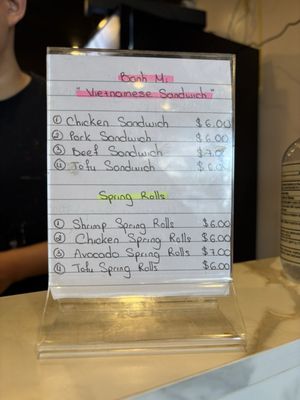 Banh Mi
"Vietnamese Sandwich"
① Chicken Sandwich $6.00
② Pork Sandwich $6.00
③ Beef Sandwich $7.00
④ Tofu Sandwich $6.00
Spring Rolls
① Shrimp Spring Rolls $6.00
② Chicken Spring Rolls $6.00
③ Avocado Spring Rolls $7.00
④ Tofu Spring Rolls $6.00